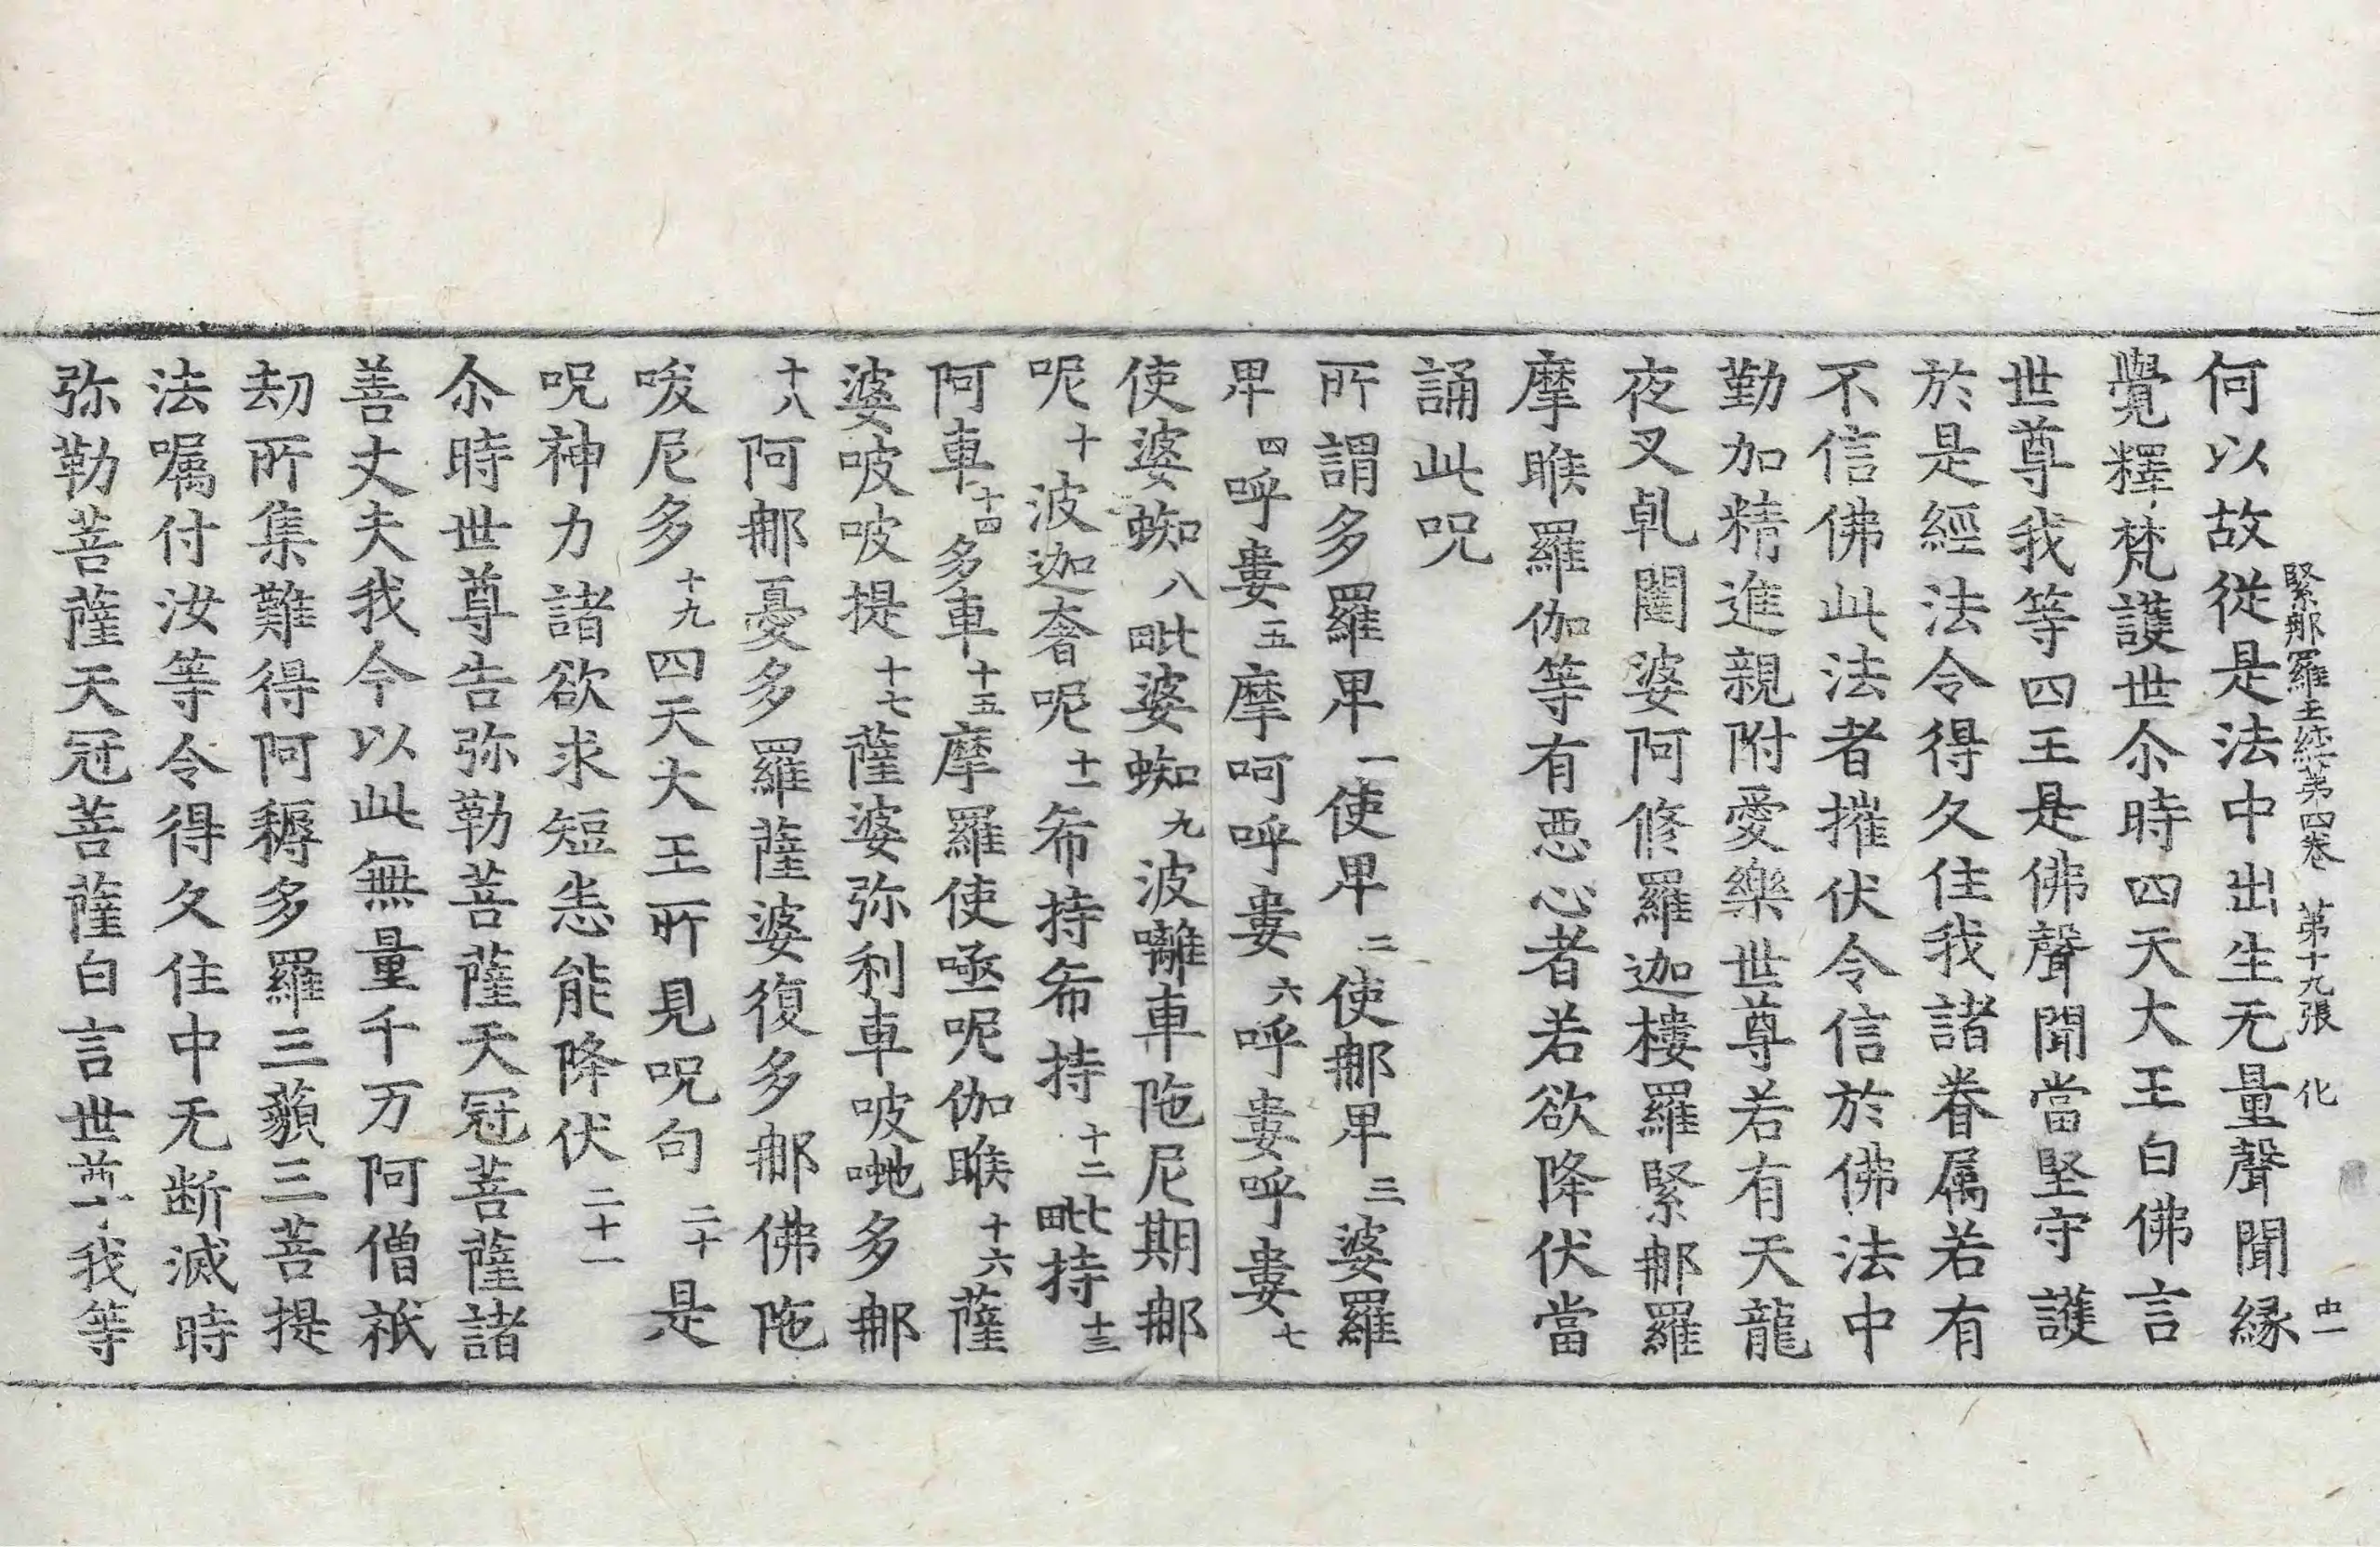 緊那羅王經第四卷　第十九張　化　中一
何以故從是法中出生无量聲聞縁
覺釋梵護世尒時四天大王白佛言
世尊我等四王是佛聲聞當堅守護
於是經法令得久住我諸眷属若有
不信佛此法者摧伏令信於佛法中
勤加精進親附愛樂世尊若有天龍
夜叉乹闥婆阿修羅迦樓羅緊那羅
摩睺羅伽等有悪心者若欲降伏當
誦此呪
所謂多羅卑一使卑二使那卑三婆羅
卑四呼婁五摩呵呼婁六呼婁呼婁七
使婆蜘八毗婆蜘九波囄車陁尼期那
呢十波迦奢呢十一希持希持十二毗持十三
阿車十四多車十五摩羅使唖呢伽睺十六薩
婆㖠㖠提十七薩婆弥利車㖠哋多那
十八阿那憂多羅薩婆復多那佛陁
㖠尼多十九四天大王所見呪句二十是
呪神力諸欲求短恚能降伏二十一
尒時世尊告弥勒菩薩天冠菩薩諸
善丈夫我今以此無量千万阿僧祇
劫所集難得阿耨多羅三藐三菩提
法嘱付汝等令得久住中无断滅時
弥勒菩薩天冠菩薩白言世尊我等